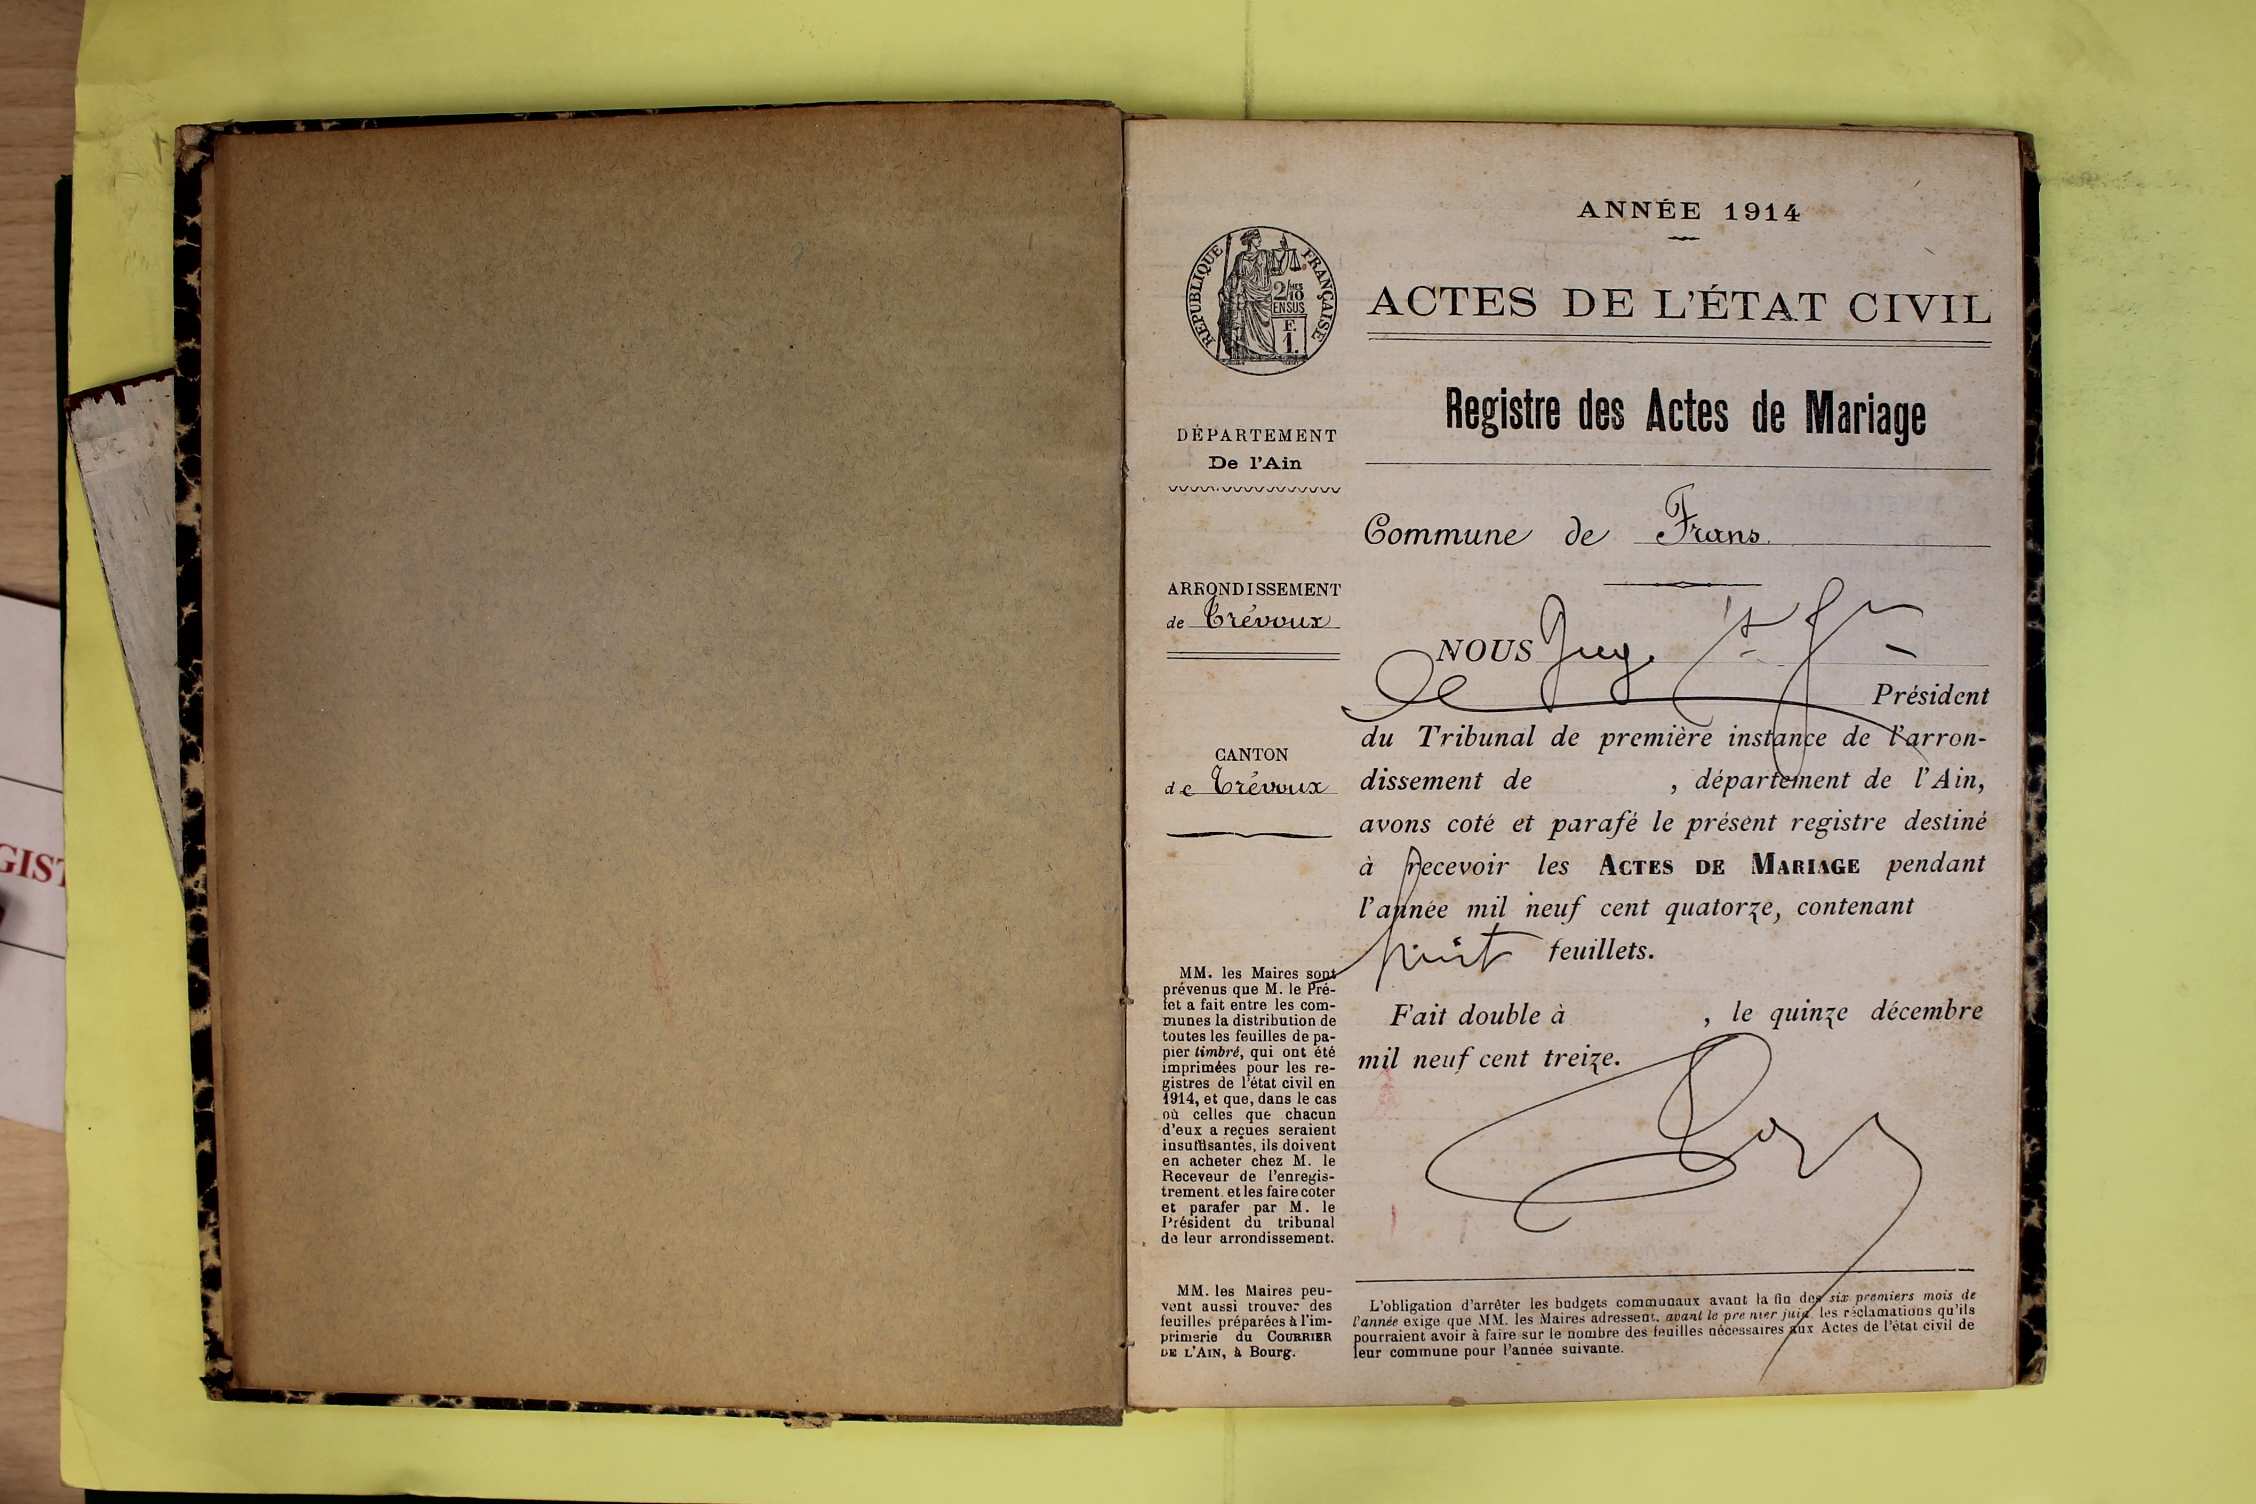 ANNÉE 1914
RÉPUBLIQUE FRANÇAISE
2/10 MES
EN SUS
F.
1.
ACTES DE L'ÉTAT CIVIL
Registre des Actes de Mariage
DÉPARTEMENT
De l'Ain
Commune de Frans
ARRONDISSEMENT
de Trévoux
CANTON
de Trévoux
NOUS
Président
du Tribunal de première instance de l'arron-
dissement de , département de l'Ain,
avons coté et parafé le présent registre destiné
à recevoir les ACTES DE MARIAGE pendant
l'année mil neuf cent quatorze, contenant
huit feuillets.
Fait double à , le quinze décembre
mil neuf cent treize.
MM. les Maires sont
prévenus que M. le Pré-
fet a fait entre les com-
munes la distribution de
toutes les feuilles de pa-
pier timbré, qui ont été
imprimées pour les re-
gistres de l'état civil en
1914, et que, dans le cas
où celles que chacun
d'eux a reçues seraient
insuffisantes, ils doivent
en acheter chez M. le
Receveur de l'enregis-
trement et les faire coter
et parafer par M. le
Président du tribunal
de leur arrondissement.
MM. les Maires peu-
vent aussi trouver des
feuilles préparées à l'im-
primerie du COURRIER
DE L'AIN, à Bourg.
L'obligation d'arrêter les budgets communaux avant la fin des six premiers mois de
l'année exige que MM. les Maires adressent, avant le premier juin, les réclamations qu'ils
pourraient avoir à faire sur le nombre des feuilles nécessaires aux Actes de l'état civil de
leur commune pour l'année suivante.
GIST